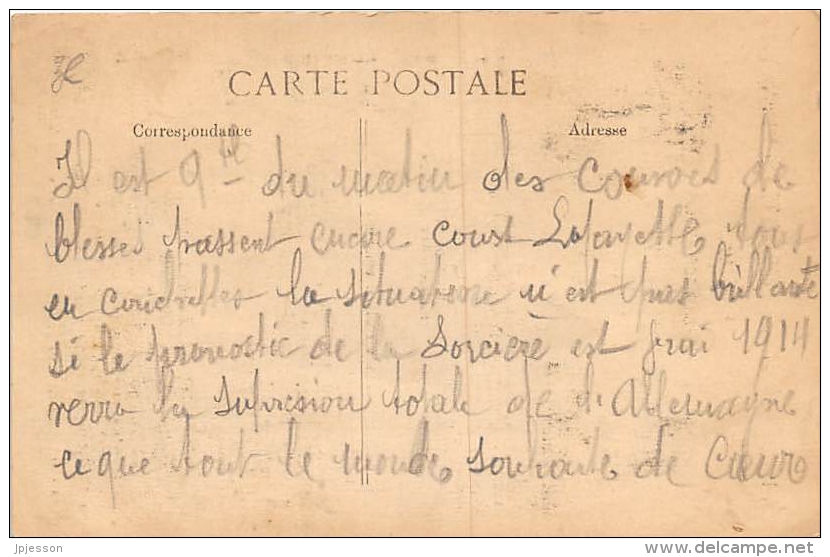 CARTE POSTALE
Correspondance
Adresse
Il est 9 H du matin des convois de
blessés passent encore court Lafayette tous
en civiere la situation n'est pas brillante
si le pronostic de la Sorciere est vrai 1914
verra la supression totale de l'Allemagne
ce que tout le monde souhaite de Cœur
jpjesson
www.delcampe.net